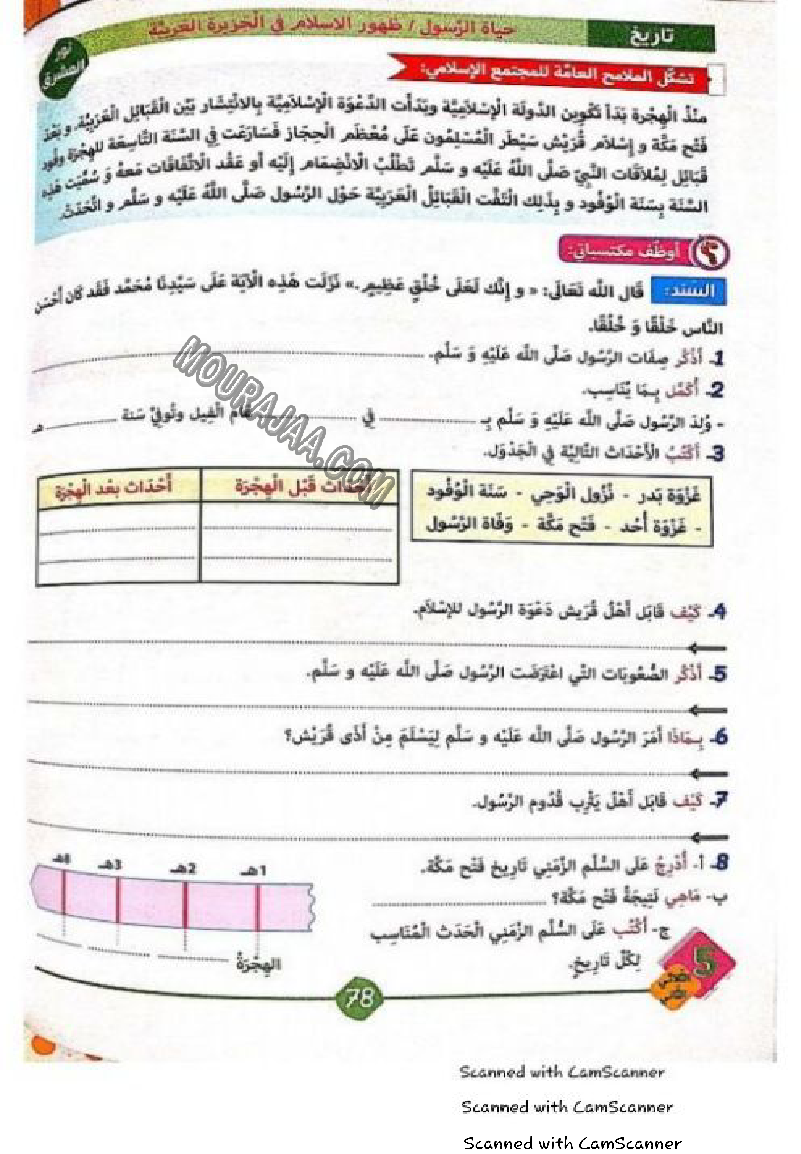 تاريخ
حياة الرّسول / ظهور الاسلام في الجزيرة العربيّة
نور المشرق
تشكّل الملامح العامّة للمجتمع الإسلامي:
منْذُ الْهِجْرة بَدَأ تَكْوين الدَّولَة الْإسْلاميَّة وبَدَأت الدَّعْوَة الْإسْلَاميَّة بِالانْتِشَار بَيْن الْقَبَائِل الْعَرَبِيَّة. و بَعْدَ
فَتْح مَكَّة و إسْلام قُرَيْش سَيْطَر الْمُسْلِمُون عَلَى مُعْظَم الْحِجَاز فَسَارَعَت في السَّنَة التَّاسِعَة للهِجْرَة وفُود
قَبَائِل لِمُلاَقَات النَّبِيّ صَلَّى اللَّهُ عَلَيْه و سَلَّم تَطلُبُ الانْضِمَام إِلَيْه أو عَقْد الاتِّفَاقَات مَعهُ وَ سُمِّيَت هَذِه
السَّنَة بِسَنَة الْوُفُود و بِذَلِك الْتَفَّت الْقَبَائِلُ الْعَرَبِيَّة حَوْل الرَّسُول صَلَّى اللَّهُ عَلَيْه و سَلَّم و اتَّحَدَت.
أوظّف مكتسباتي:
السّند: قَال اللَّه تَعَالَى: « و إنَّك لَعَلَى خُلُقٍ عَظِيمٍ.» نَزَلَت هَذِه الْآيَة عَلَى سَيِّدِنَا مُحَمَّد فَقَد كَان أَحْسَن
النَّاس خَلْقًا وَ خُلُقًا.
1- أَذْكُر صِفَات الرَّسُول صَلَّى اللَّه عَلَيْهِ وَ سَلَّم. ........
2- أَكَمِّل بِمَا يُنَاسِب.
- وُلِدَ الرَّسُول صَلَّى اللَّه عَلَيْهِ وَ سَلَّم بِـ ........ في ........ عَام الْفِيل وتُوفِيَّ سَنة ........ هـ
3- أَكْتُبُ الْأَحْدَاث التَّالِيَة فِي الْجَدْوَل.
غَزْوَة بَدر - نُزُول الْوَحي - سَنَة الْوُفُود
- غَزْوَة أُحُد - فَتْح مَكَّة - وَفَاة الرَّسُول
أَحْدَاث قَبْل الْهِجْرَة
أَحْدَاث بعْد الْهِجْرَة
4- كَيْف قَابَل أَهْلُ قُرَيش دَعْوَة الرَّسُول للإسْلاَم.
5- أَذْكُر الصُّعُوبَات الَّتي اعْتَرَضَت الرَّسُول صَلَّى اللَّه عَلَيْه و سَلَّم.
6- بِمَاذَا أَمَرَ الرَّسُول صَلَّى اللَّه عَلَيْه و سَلَّم لِيَسْلَمَ مِنْ أَذَى قُرَيْش؟
7- كَيْف قَابَل أَهْلُ يَثْرِب قُدُوم الرَّسُول.
8- أ- أُدْرِجُ عَلَى السُّلَّم الزَّمَنِي تَارِيخ فَتْح مَكَّة.
ب- مَاهِي نَتِيجَةُ فَتْح مَكَّة؟ ........
ج- أَكْتُب عَلَى السُّلَّم الزَّمَنِي الْحَدَث الْمُنَاسِب
لِكُلّ تَارِيخٍ.
1هـ 2هـ 3هـ 4هـ
الهِجْرَةُ
5
78
MOURAJAA.COM
Scanned with CamScanner
Scanned with CamScanner
Scanned with CamScanner